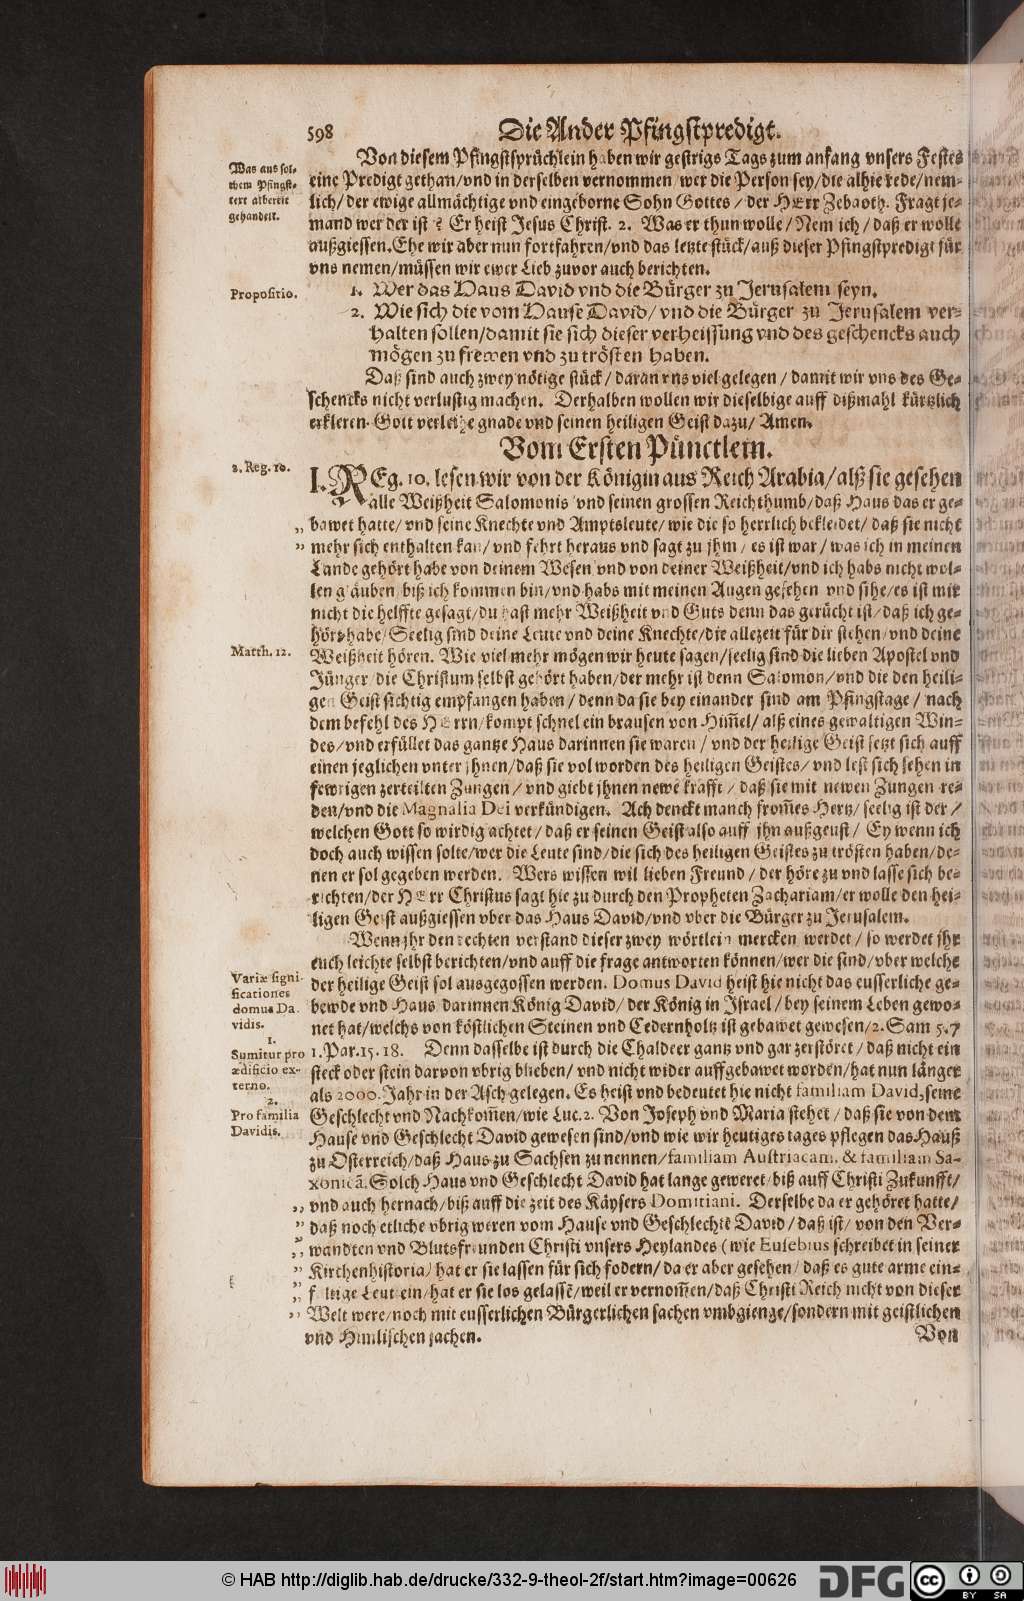 598
Die Ander Pfingstpredigt.
Was aus sol-
chem Pfingst-
text albereit
gehandelt.
Von diesem Pfingstsprüchlein haben wir gestrigs Tags zum anfang vnsers Festes
eine Predigt gethan/vnd in derselben vernommen/wer die Person sey/die alhie rede/nem-
lich/der ewige allmächtige vnd eingeborne Sohn Gottes/der HErr Zebaoth. Fragt je-
mand wer der ist? Er heist Jesus Christ. 2. Was er thun wolle/Nemlich/daß er wolle
außgiessen. Ehe wir aber nun fortfahren/vnd das letzte stück/auß dieser Pfingstpredigt für
vns nemen/müssen wir ewer Lieb zuvor auch berichten.
Propositio.
1. Wer das Haus David vnd die Bürger zu Jerusalem seyn.
2. Wie sich die vom Hause David/vnd die Bürger zu Jerusalem ver-
halten sollen/damit sie sich dieser verheissung vnd des geschencks auch
mögen zu frewen vnd zu trösten haben.
Daß sind auch zwey nötige stück/daran vns viel gelegen/damit wir vns des Ge-
schencks nicht verlustig machen. Derhalben wollen wir dieselbige auff dißmahl kürtzlich
erkleren. Gott verleihe gnade vnd seinen heiligen Geist dazu/Amen.
Vom Ersten Pünctlein.
3. Reg. 10.
I. REg. 10. lesen wir von der Königin aus Reich Arabia/alß sie gesehen
alle Weißheit Salomonis vnd seinen grossen Reichthumb/daß Haus das er ge-
„ bawet hatte/vnd seine Knechte vnd Amptsleute/wie die so herrlich bekleidet/daß sie nicht
„ mehr sich enthalten kan/vnd fehrt heraus vnd sagt zu jhm/es ist war/was ich in meinen
Lande gehört habe von deinem Wesen vnd von deiner Weißheit/vnd ich habs nicht wol-
len gläuben/biß ich kommen bin/vnd habs mit meinen Augen gesehen vnd sihe/es ist mir
nicht die helffte gesagt/du hast mehr Weißheit vnd Guts denn das gerücht ist/daß ich ge-
hört habe/Seelig sind deine Leute vnd deine Knechte/die allezeit für dir stehen/vnd deine
Matth. 12.
Weißheit hören. Wie viel mehr mögen wir heute sagen/seelig sind die lieben Apostel vnd
Jünger/die Christum selbst gehört haben/der mehr ist denn Salomon/vnd die den heili-
gen Geist sichtig empfangen haben/denn da sie bey einander sind am Pfingstage/nach
dem befehl des HErrn/kompt schnel ein brausen von Him̃el/alß eines gewaltigen Win-
des/vnd erfüllet das gantze Haus darinnen sie waren/vnd der heilige Geist setzt sich auff
einen jeglichen vnter jhnen/daß sie vol worden des heiligen Geistes/vnd lest sich sehen in
fewrigen zerteilten Zungen/vnd giebt jhnen newe kräfft/daß sie mit newen Zungen re-
den/vnd die Magnalia Dei verkündigen. Ach denckt manch from̃es Hertz/seelig ist der/
welchen Gott so wirdig achtet/daß er seinen Geist also auff jhn außgeust/Ey wenn ich
doch auch wissen solte/wer die Leute sind/die sich des heiligen Geistes zu trösten haben/de-
nen er sol gegeben werden. Wers wissen wil lieben Freund/der höre zu vnd lasse sich be-
richten/der HErr Christus sagt hie zu durch den Propheten Zachariam/er wolle den hei-
ligen Geist außgiessen vber das Haus David/vnd vber die Bürger zu Jerusalem.
Wenn jhr den rechten verstand dieser zwey wörtlein mercken werdet/so werdet jhr
euch leichte selbst berichten/vnd auff die frage antworten können/wer die sind/vber welche
Variæ signi-
ficationes
domus Da-
vidis.
der heilige Geist sol ausgegossen werden. Domus David heist hie nicht das eusserliche ge-
bewde vnd Haus darinnen König David/der König in Israel/bey seinem Leben gewo-
net hat/welchs von köstlichen Steinen vnd Cedernholtz ist gebawet gewesen/2. Sam 5. 7
1.
Sumitur pro
ædificio ex-
terno.
1. Par. 15. 18. Denn dasselbe ist durch die Chaldeer gantz vnd gar zerstöret/daß nicht ein
steck oder stein darvon vbrig blieben/vnd nicht wider auffgebawet worden/hat nun länger
als 2000. Jahr in der Asch gelegen. Es heist vnd bedeutet hie nicht familiam David, seine
2.
Pro familia
Davidis.
Geschlecht vnd Nachkom̃en/wie Luc. 2. Von Joseph vnd Maria stehet/daß sie von dem
Hause vnd Geschlecht David gewesen sind/vnd wie wir heutiges tages pflegen das Hauß
zu Osterreich/daß Haus zu Sachsen zu nennen/familiam Austriacam, & familiam Sa-
xonicã. Solch Haus vnd Geschlecht David hat lange geweret/biß auff Christi Zukunfft/
„ vnd auch hernach/biß auff die zeit des Käysers Domitiani. Derselbe da er gehöret hatte/
„ daß noch etliche vbrig weren vom Hause vnd Geschlechte David/daß ist/von den Ver-
„ wandten vnd Blutsfreunden Christi vnsers Heylandes (wie Eusebius schreibet in seiner
„ Kirchenhistoria) hat er sie lassen für sich fodern/da er aber gesehen/daß es gute arme ein-
„ feltige Leut sein/hat er sie los gelassẽ/weil er vernom̃en/daß Christi Reich nicht von dieser
„ Welt were/noch mit eusserlichen Bürgerlichen sachen vmbgienge/sondern mit geistlichen
vnd Himlischen sachen.
Von
© HAB http://diglib.hab.de/drucke/332-9-theol-2f/start.htm?image=00626
DFG
cc BY SA